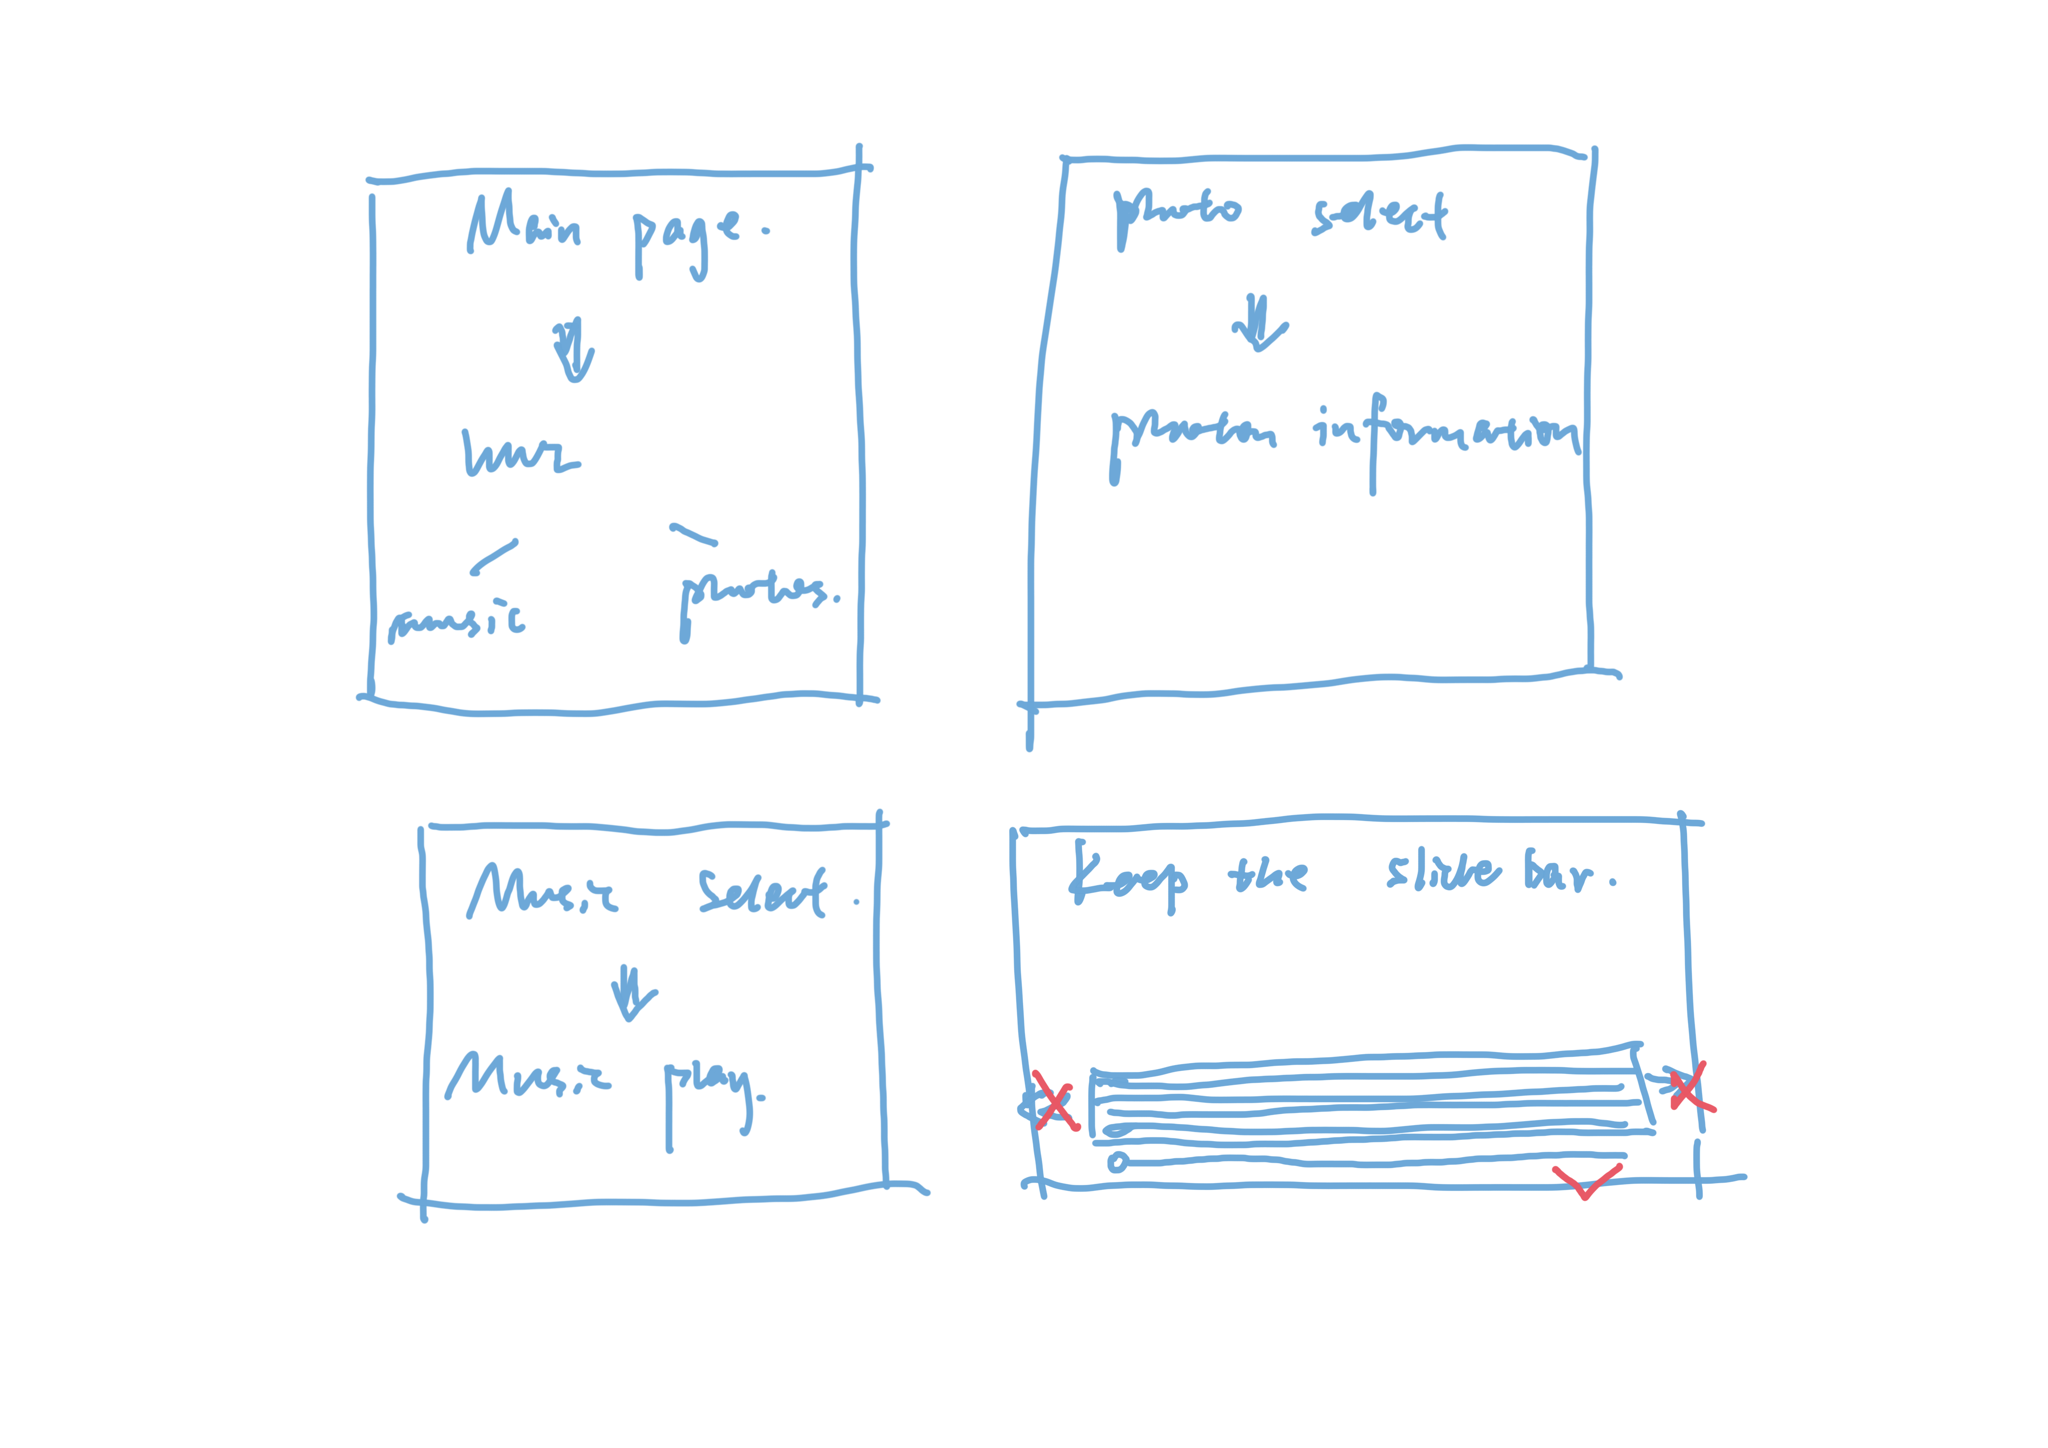 Main page.
music
photos.
photo select
photo information
Music select.
Music play.
Keep the slide bar.